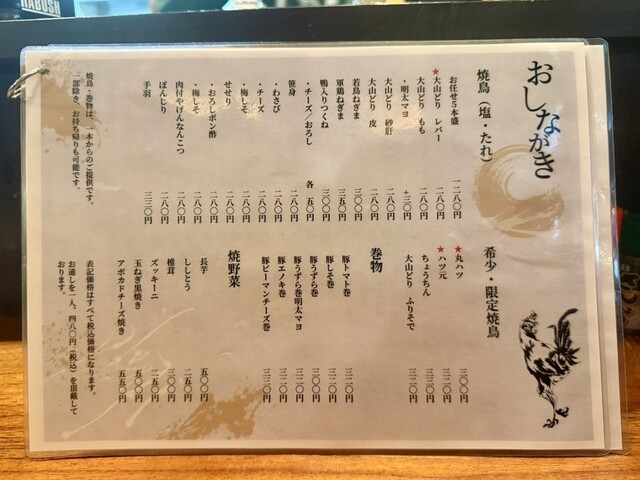 おしながき
焼鳥（塩・たれ）
お任せ5本盛 一二八〇円
★大山どり レバー 二八〇円
大山どり もも 二八〇円
・明太マヨ +三〇円
大山どり 砂肝 二八〇円
大山どり 皮 二八〇円
若鳥ねぎま 三〇〇円
軍鶏ねぎま 三五〇円
鴨入りつくね 三〇〇円
・チーズ／おろし 各 五〇円
笹身 二八〇円
・わさび 二八〇円
・チーズ 二八〇円
・梅しそ 二八〇円
せせり 二八〇円
・おろしポン酢 二八〇円
・梅しそ 二八〇円
肉付やげんなんこつ 二八〇円
ぼんじり 二八〇円
手羽 三三〇円
焼鳥・巻物は、一本からのご提供です。
一部除き、お持ち帰りも可能です。
希少・限定焼鳥
★丸ハツ 三〇〇円
★ハツ元
ちょうちん
大山どり ふりそで 三二〇円
巻物
豚トマト巻 三二〇円
豚しそ巻
豚うずら巻 三〇〇円
豚うずら巻明太マヨ
豚エノキ巻 三二〇円
豚ピーマンチーズ巻
焼野菜
長芋 五〇〇円
ししとう 二五〇円
椎茸 三〇〇円
ズッキーニ 二五〇円
玉ねぎ黒焼き 五〇〇円
アボカドチーズ焼き 五五〇円
表記価格はすべて税込価格になります。
お通しを一人、四八〇円（税込）を頂戴して
おります。